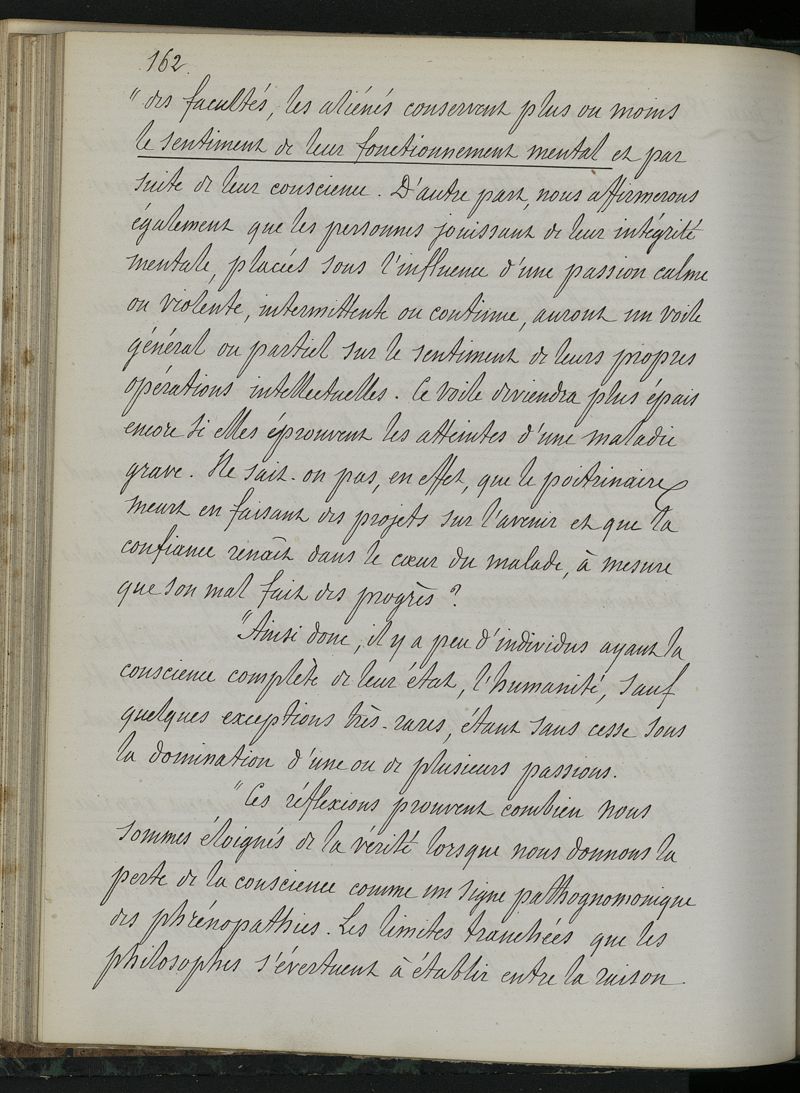 162.
" des facultés, les aliénés conservent plus ou moins
le sentiment de leur fonctionnement mental et par
suite de leur conscience. D'autre part, nous affirmerons
également que les personnes jouissant de leur intégrité
mentale, placées sous l'influence d'une passion calme
ou violente, intermittente ou continue, auront un voile
général ou partiel sur le sentiment de leurs propres
opérations intellectuelles. Ce voile deviendra plus épais
encore si elles éprouvent les atteintes d'une maladie
grave. Ne sait-on pas, en effet, que le poitrinaire
meurt en faisant des projets sur l'avenir et que la
confiance renaît dans le cœur du malade, à mesure
que son mal fait des progrès ?
"Ainsi donc, il y a peu d'individus ayant la
conscience complète de leur état, l'humanité, sauf
quelques exceptions très-rares, étant sans cesse sous
la domination d'une ou de plusieurs passions.
"Ces réflexions prouvent combien nous
sommes éloignés de la vérité lorsque nous donnons la
perte de la conscience comme un signe pathognomonique
des phrénopathies. Les limites tranchées que les
philosophes s'évertuent à établir entre la raison